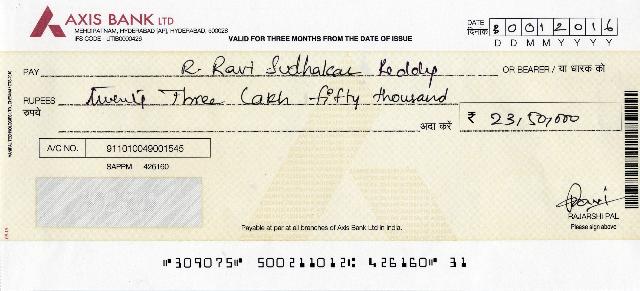 AXIS BANK LTD
MEHDIPATNAM, HYDERABAD [AP], HYDERABAD, 500028
IFS CODE - UTIB0000426
VALID FOR THREE MONTHS FROM THE DATE OF ISSUE
DATE
दिनांक
0 1 2 0 1 6
D D M M Y Y Y Y
PAY R. Ravi Sudhakar Reddy OR BEARER / या धारक को
RUPEES Twenty Three Lakh Fifty thousand
रुपये
अदा करें ₹ 23,50,000
A/C NO. 911010049001545
SAPPM 426160
RAJARSHI PAL
Please sign above
Payable at par at all branches of Axis Bank Ltd in India.
"309075" 500211012 426160" 31